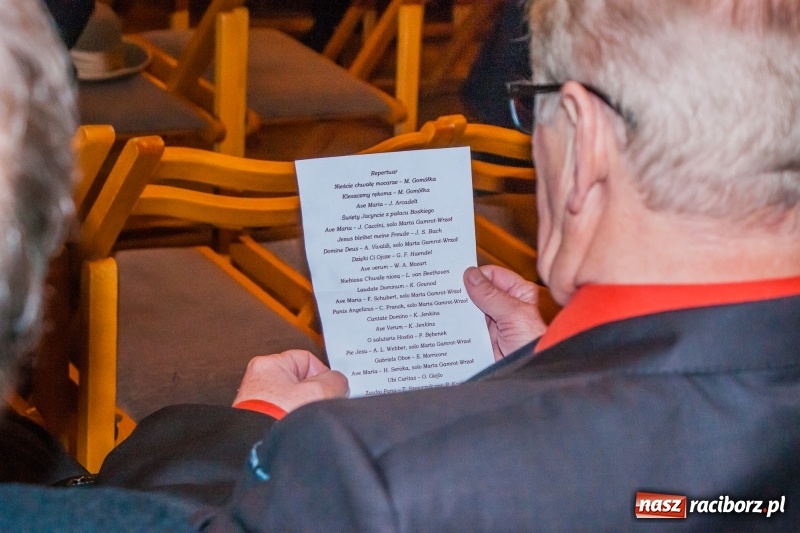 Repertuar
Nieście chwałę mocarze – M. Gomółka
Kleszczmy rękoma – M. Gomółka
Ave Maria – J. Arcadelt
Święty Jacyncie z pałacu Boskiego
Ave Maria – J. Caccini, solo Marta Gamrot-Wrzoł
Jesus bleibet meine Freude – J. S. Bach
Domine Deus – A. Vivaldi, solo Marta Gamrot-Wrzoł
Dzięki Ci Ojcze – G. F. Haendel
Ave verum – W. A. Mozart
Niebiosa Chwałę niosą – L. van Beethoven
Laudate Dominum – K. Gounod
Ave Maria – F. Schubert, solo Marta Gamrot-Wrzoł
Panis Angelicus – C. Franck, solo Marta Gamrot-Wrzoł
Cantate Domino – K. Jenkins
Ave Verum – K. Jenkins
O salutaris Hostia – P. Bębenek
Pie Jesu – A. L. Webber, solo Marta Gamrot-Wrzoł
Gabriels Oboe – E. Morricone
Ave Maria – H. Sereka, solo Marta Gamrot-Wrzoł
Ubi Caritas – O. Gjeilo
nasz raciborz.pl